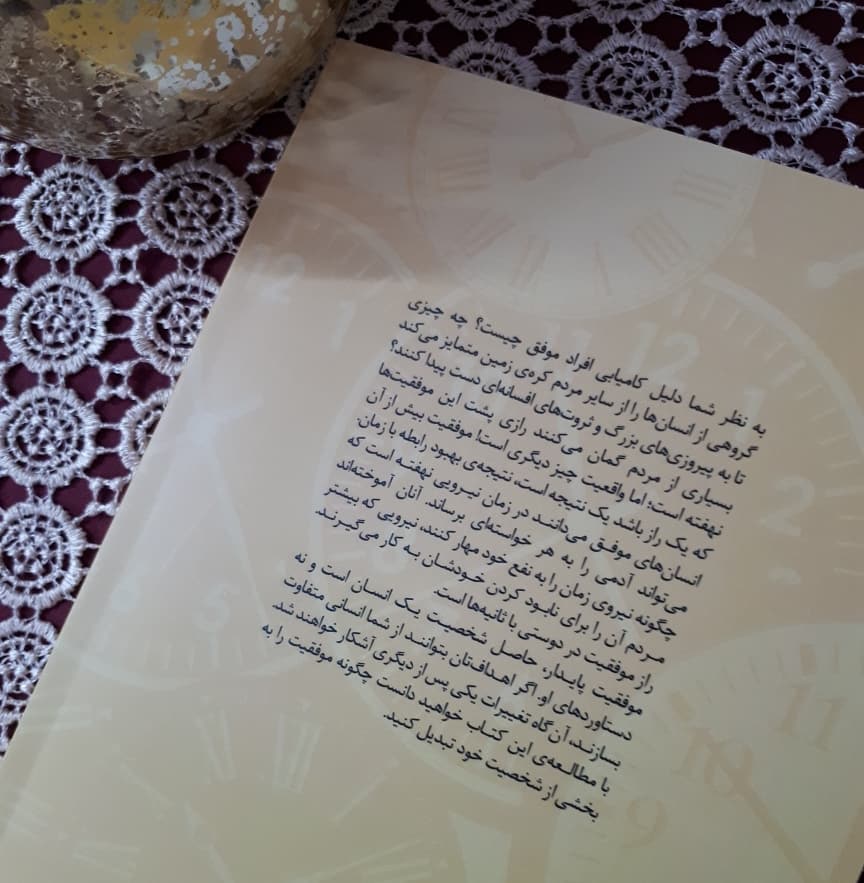 به نظر شما دلیل کامیابی افراد موفق چیست؟ چه چیزی
گروهی از انسان‌ها را از سایر مردم کره‌ی زمین متمایز می‌کند
تا به پیروزی‌های بزرگ و ثروت‌های افسانه‌ای دست پیدا کنند؟
بسیاری از مردم گمان می‌کنند رازی پشت این موفقیت‌ها
نهفته است؛ اما واقعیت چیز دیگری است! موفقیت بیش از آن
که یک راز باشد یک نتیجه است، نتیجه‌ی بهبود رابطه با زمان.
انسان‌های موفق می‌دانند در زمان نیرویی نهفته است که
می‌تواند آدمی را به هر خواسته‌ای برساند. آنان آموخته‌اند
چگونه نیروی زمان را به نفع خود مهار کنند، نیرویی که بیشتر
مردم آن را برای نابود کردن خودشان به کار می‌گیرند.
راز موفقیت در دوستی با ثانیه‌ها است.
موفقیت پایدار، حاصل شخصیت یک انسان است و نه
دستاوردهای او. اگر اهداف‌تان بتوانند از شما انسانی متفاوت
بسازند، آن گاه تغییرات یکی پس از دیگری آشکار خواهند شد.
با مطالعه‌ی این کتاب خواهید دانست چگونه موفقیت را به
بخشی از شخصیت خود تبدیل کنید.
12
1
11
12
1
2
5
11
10
9